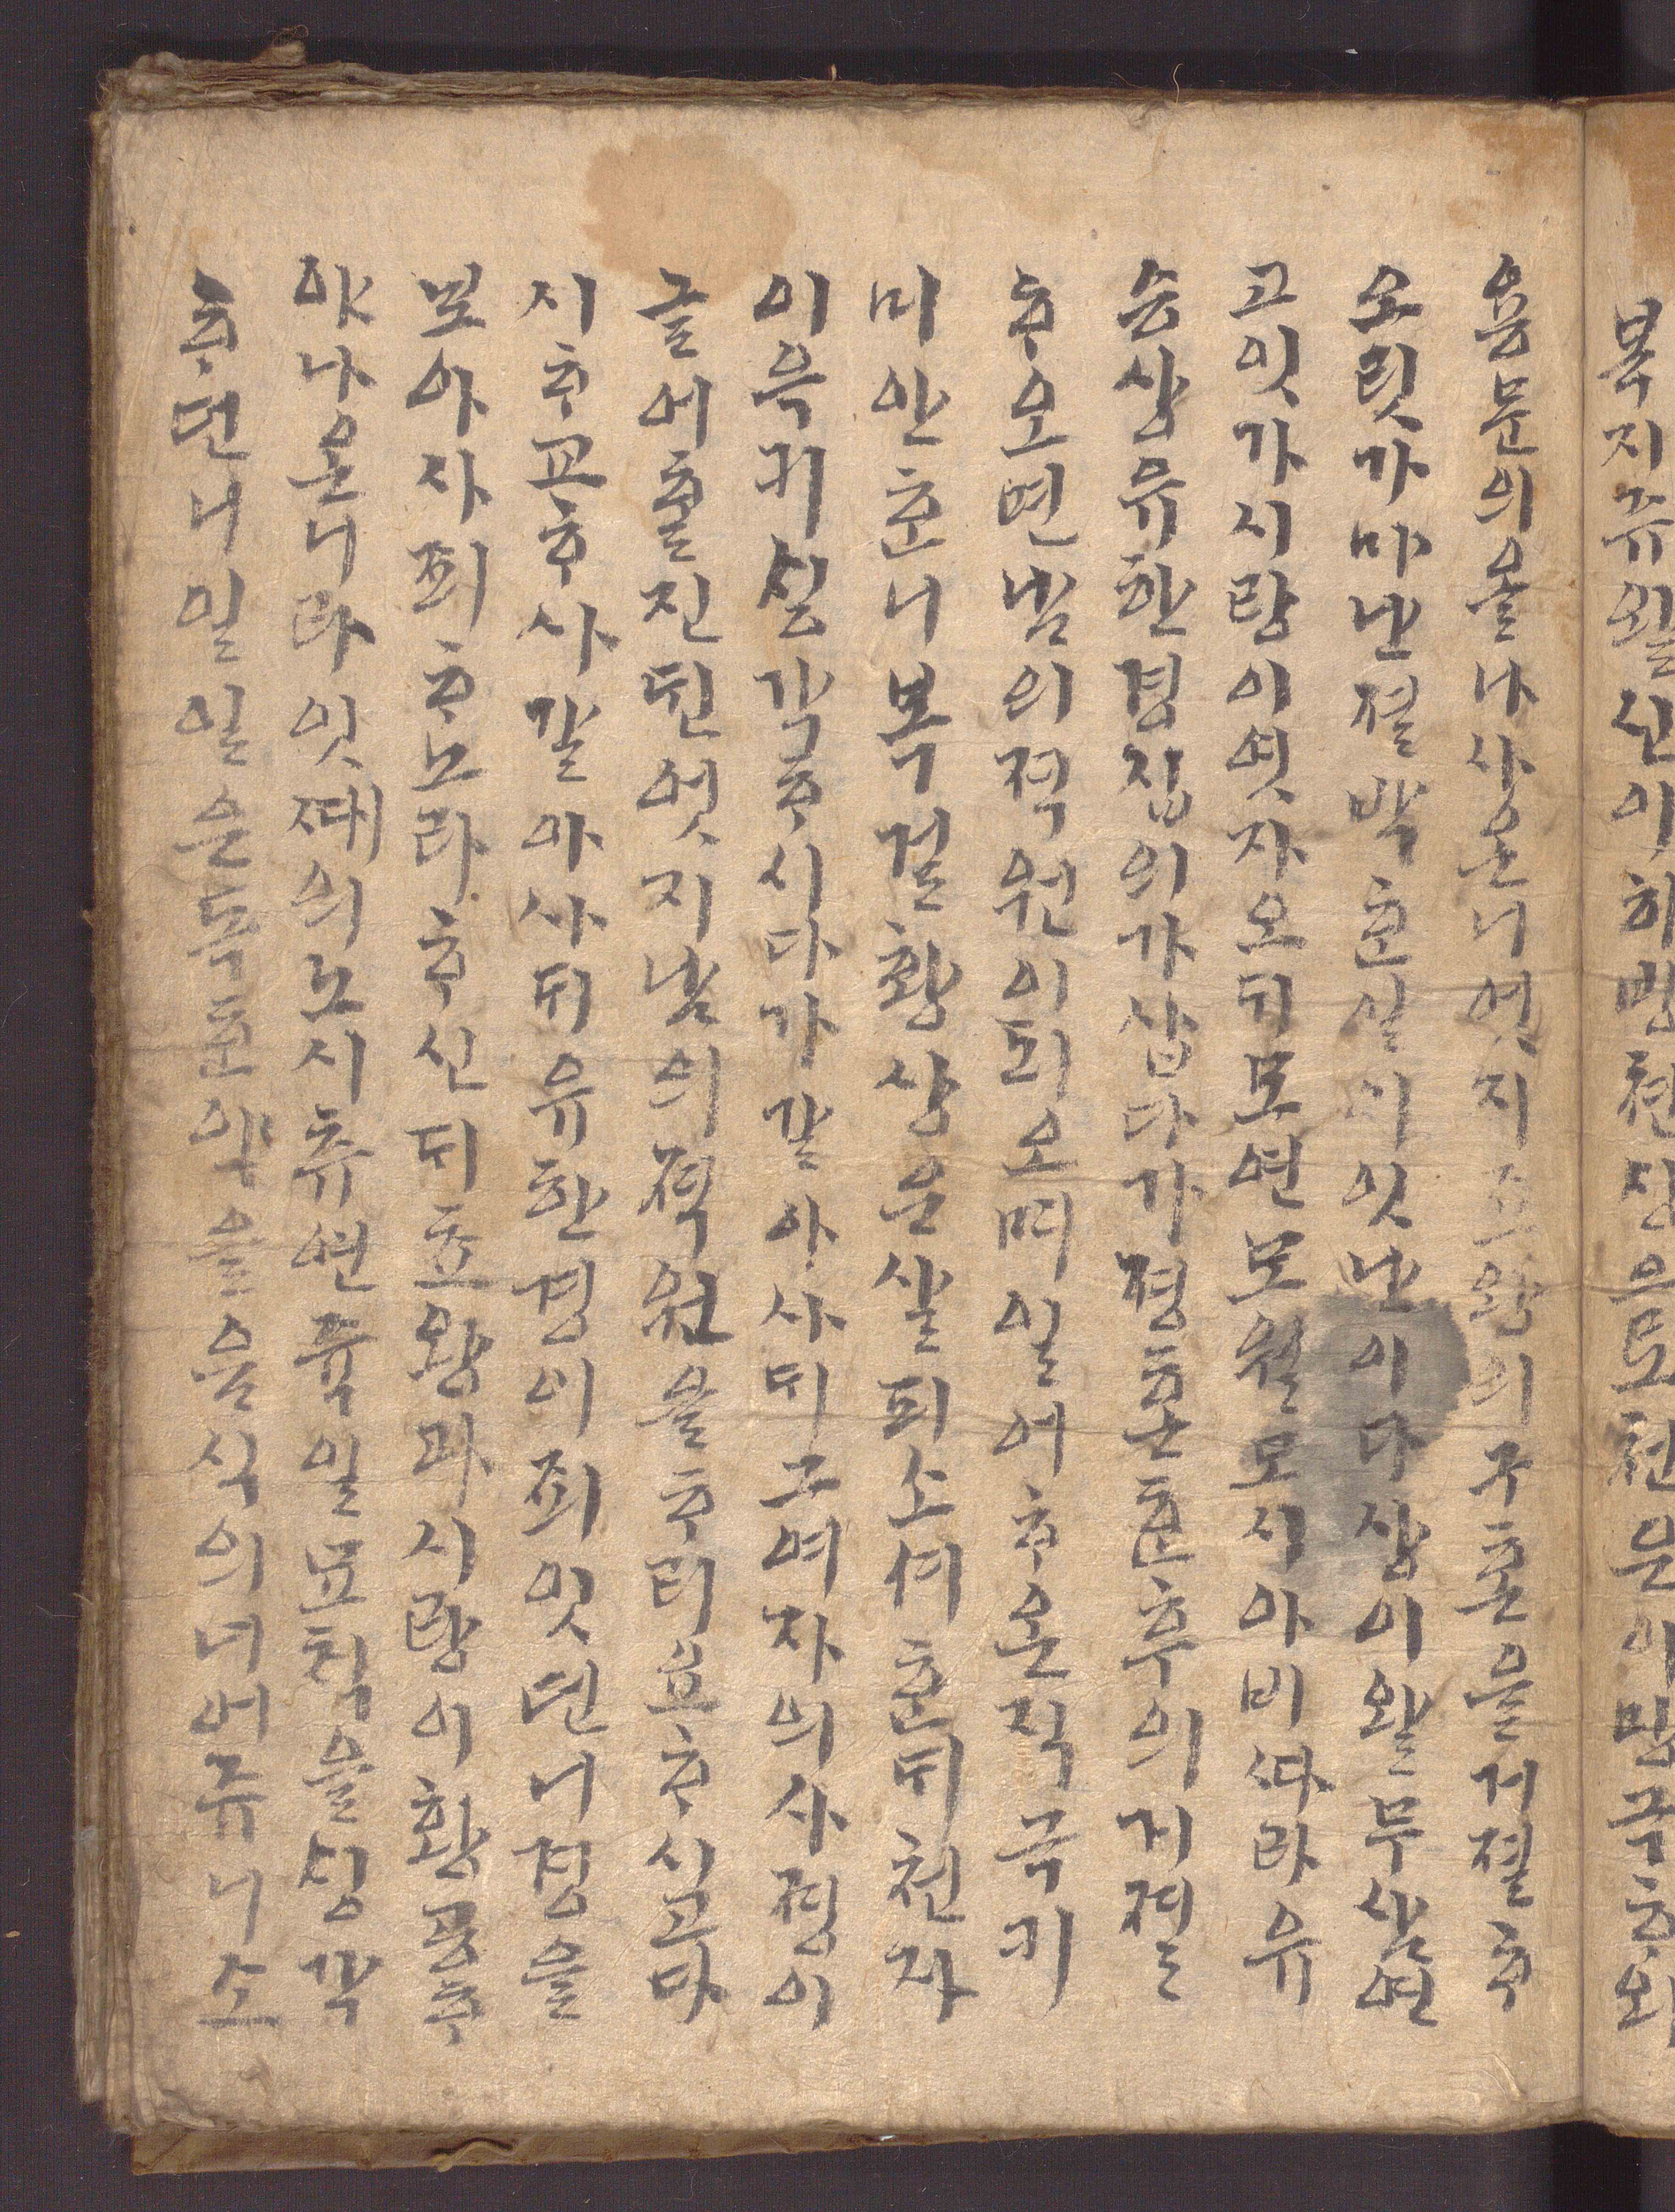 복지쥬왈신이하방쳔싱으로쳔은이망극ᄒᆞ와
용문의올나사온니엇지죠왕의구혼을거졀ᄒᆞ
오릿가마난졀박ᄒᆞᆫ실이잇난이다상이왈무삼연
고잇가시랑이엿자오ᄃᆡ모연모월모시아비ᄯᅡ라유
승상유한경집의가삽다가졍혼ᄒᆞᆫ후의거졀
ᄒᆞ오면남의젹원이되오며일어ᄒᆞ온직극키
미안ᄒᆞᆫ니복걸황상은살피소셔ᄒᆞᆫᄃᆡ쳔자
이윽키ᄉᆡᆼ각ᄒᆞ시다가갈아사ᄃᆡ그여자의사졍이
글어ᄒᆞᆯ진ᄃᆡᆫ엇지남의젹원을ᄒᆞ리요ᄒᆞ시고마
지ᄒᆞ교ᄒᆞ사갈아사ᄃᆡ유한경이죄잇던니졍을
보아사죄ᄒᆞ노라ᄒᆞ신ᄃᆡ쵸왕과시랑이황공ᄒᆞ
야나온니라잇ᄯᅢ의노시츄연퓩일묘ᄎᆡᆨ을ᄉᆡᆼ각
ᄒᆞ던니일일은독ᄒᆞᆫ약을음식의너어쥬니소